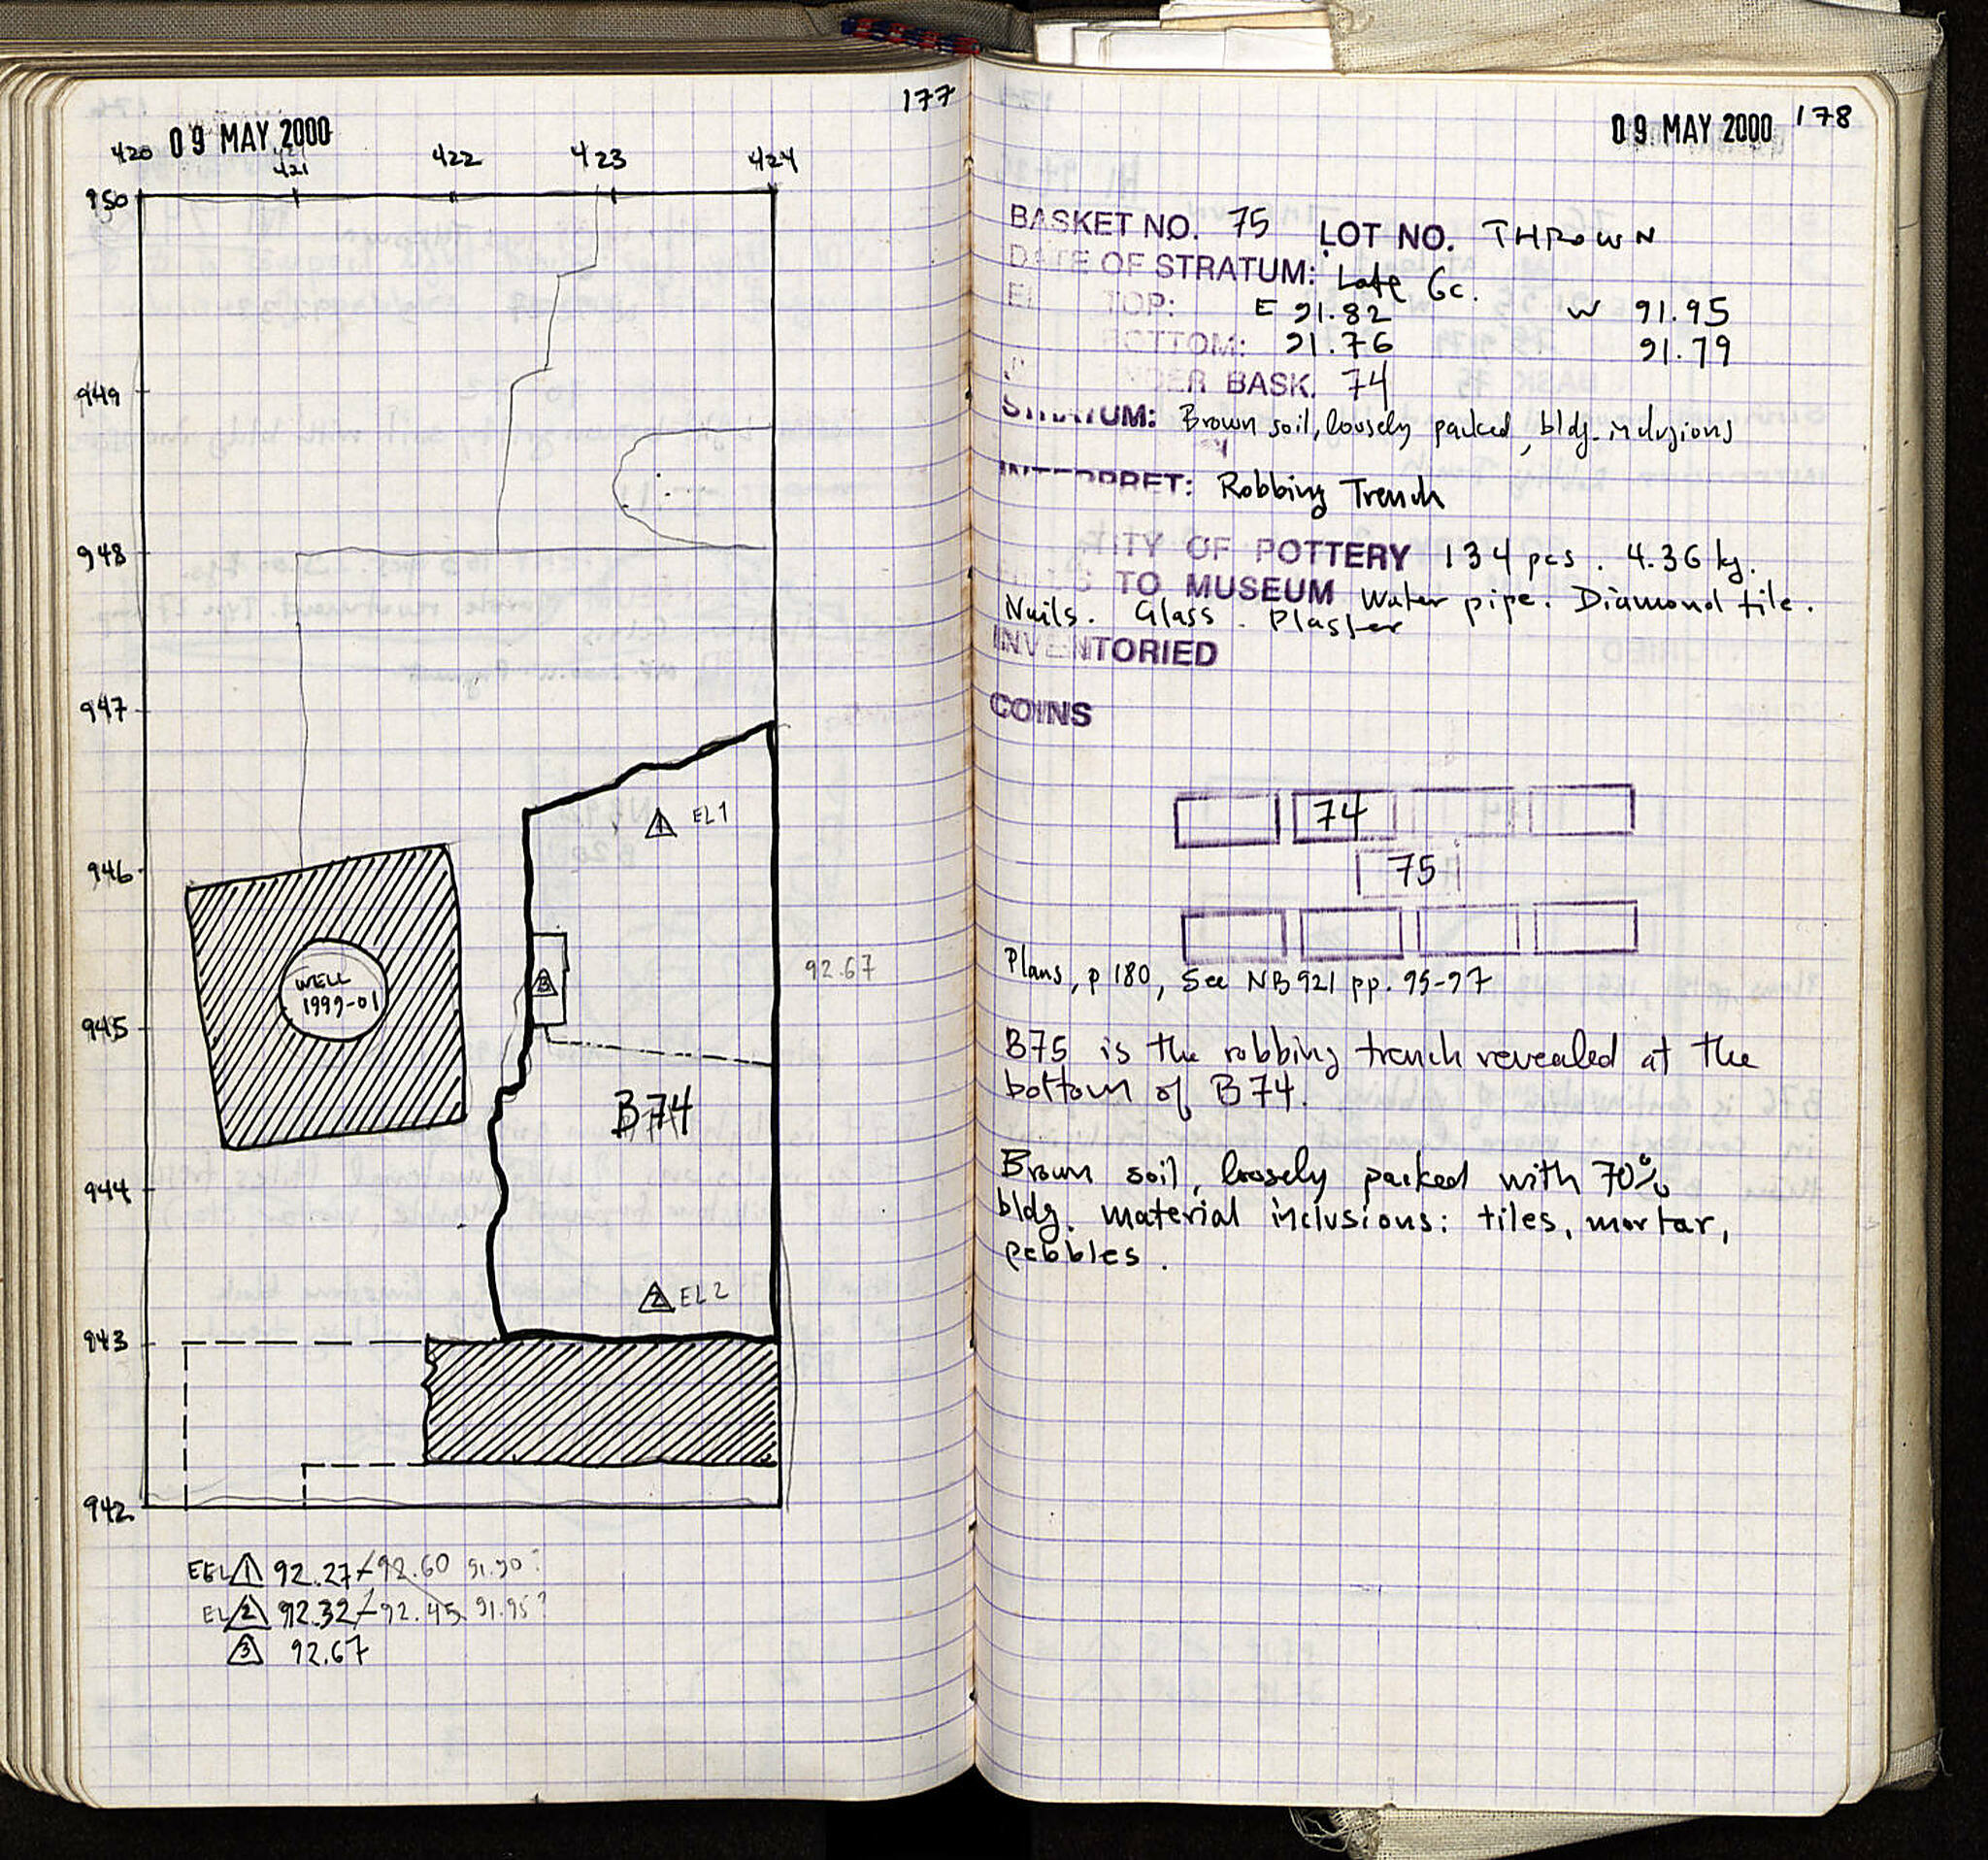 177
09 MAY 2000
420
421
422
423
424
950
949
948
947
946
945
944
943
942
EL1
WELL
1999-01
3
92.67
B74
2 EL2
EEL 1 92.27 92.60 91.90?
EL 2 92.32 92.45 91.95?
3 92.67
178
09 MAY 2000
BASKET NO. 75 LOT NO. THROWN
DATE OF STRATUM: Late 6c.
EL TOP: E 91.82 W 91.95
BOTTOM: 91.76 91.79
UNDER BASK. 74
STRATUM: Brown soil, loosely packed, bldg. inclusions
INTERPRET: Robbing Trench
TITY OF POTTERY 134 pcs. 4.36 kg.
TO MUSEUM Water pipe. Diamond tile.
Nails. Glass. Plaster
INVENTORIED
COINS
74
75
Plans, p 180, See NB 921 pp. 95-97
B75 is the robbing trench revealed at the
bottom of B74.
Brown soil, loosely packed with 70%
bldg. material inclusions: tiles, mortar,
pebbles.